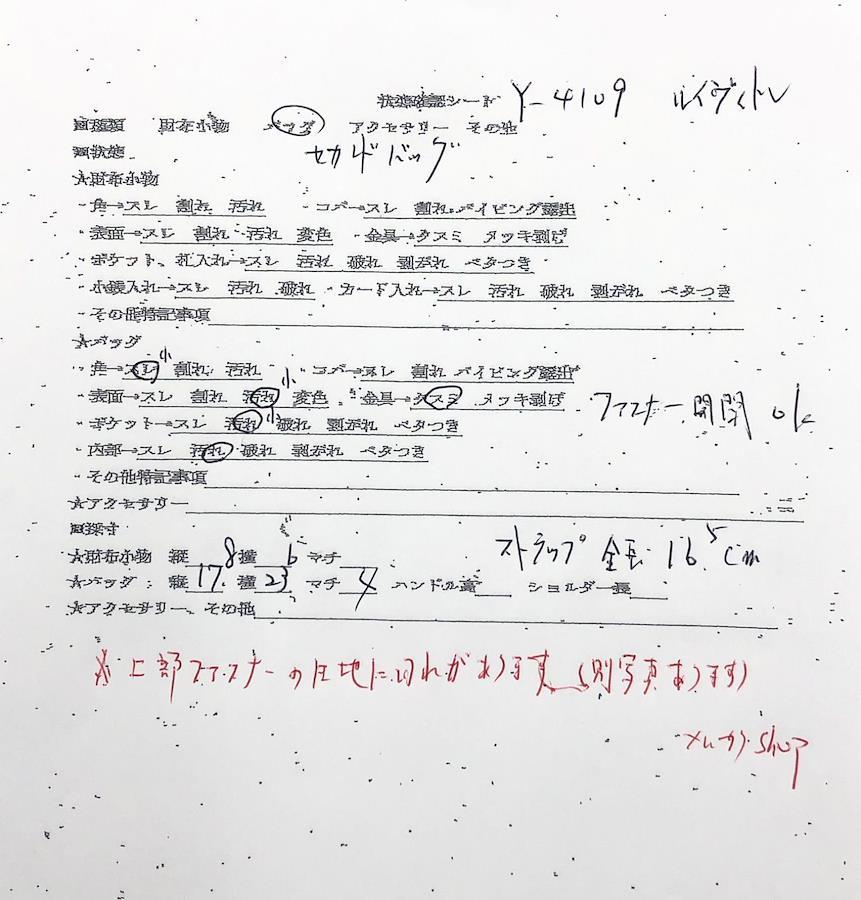 状態確認シート Y-4109 ルイヴィトン
■種類 財布小物 バッグ アクセサリー その他
■状態 セカドバッグ
★財布小物
・角→スレ 割れ 汚れ ・コバ→スレ 割れ パイピング露出
・表面→スレ 割れ 汚れ 変色 ・金具→クスミ メッキ剥げ
・ポケット、札入れ→スレ 汚れ 破れ 剥がれ ベタつき
・小銭入れ→スレ 汚れ 破れ ・カード入れ→スレ 汚れ 破れ 剥がれ ベタつき
・その他特記事項
★バッグ
・角→スレ小 割れ 汚れ ・コバ→スレ 割れ パイピング露出
・表面→スレ 割れ 汚れ小 変色 ・金具→クスミ メッキ剥げ ファスナー開閉 ok
・ポケット→スレ 汚れ小 破れ 剥がれ ベタつき
・内部→スレ 汚れ 破れ 剥がれ ベタつき
・その他特記事項
★アクセサリー
■採寸 ストラップ 16.5cm
★財布小物 縦 8 横 6 マチ
★バッグ:縦 17. 横 23 マチ 4 ハンドル高 ショルダー長
★アクセサリー、その他
※上部ファスナーの生地に切れがあります(別写真あります)
メルカリshop